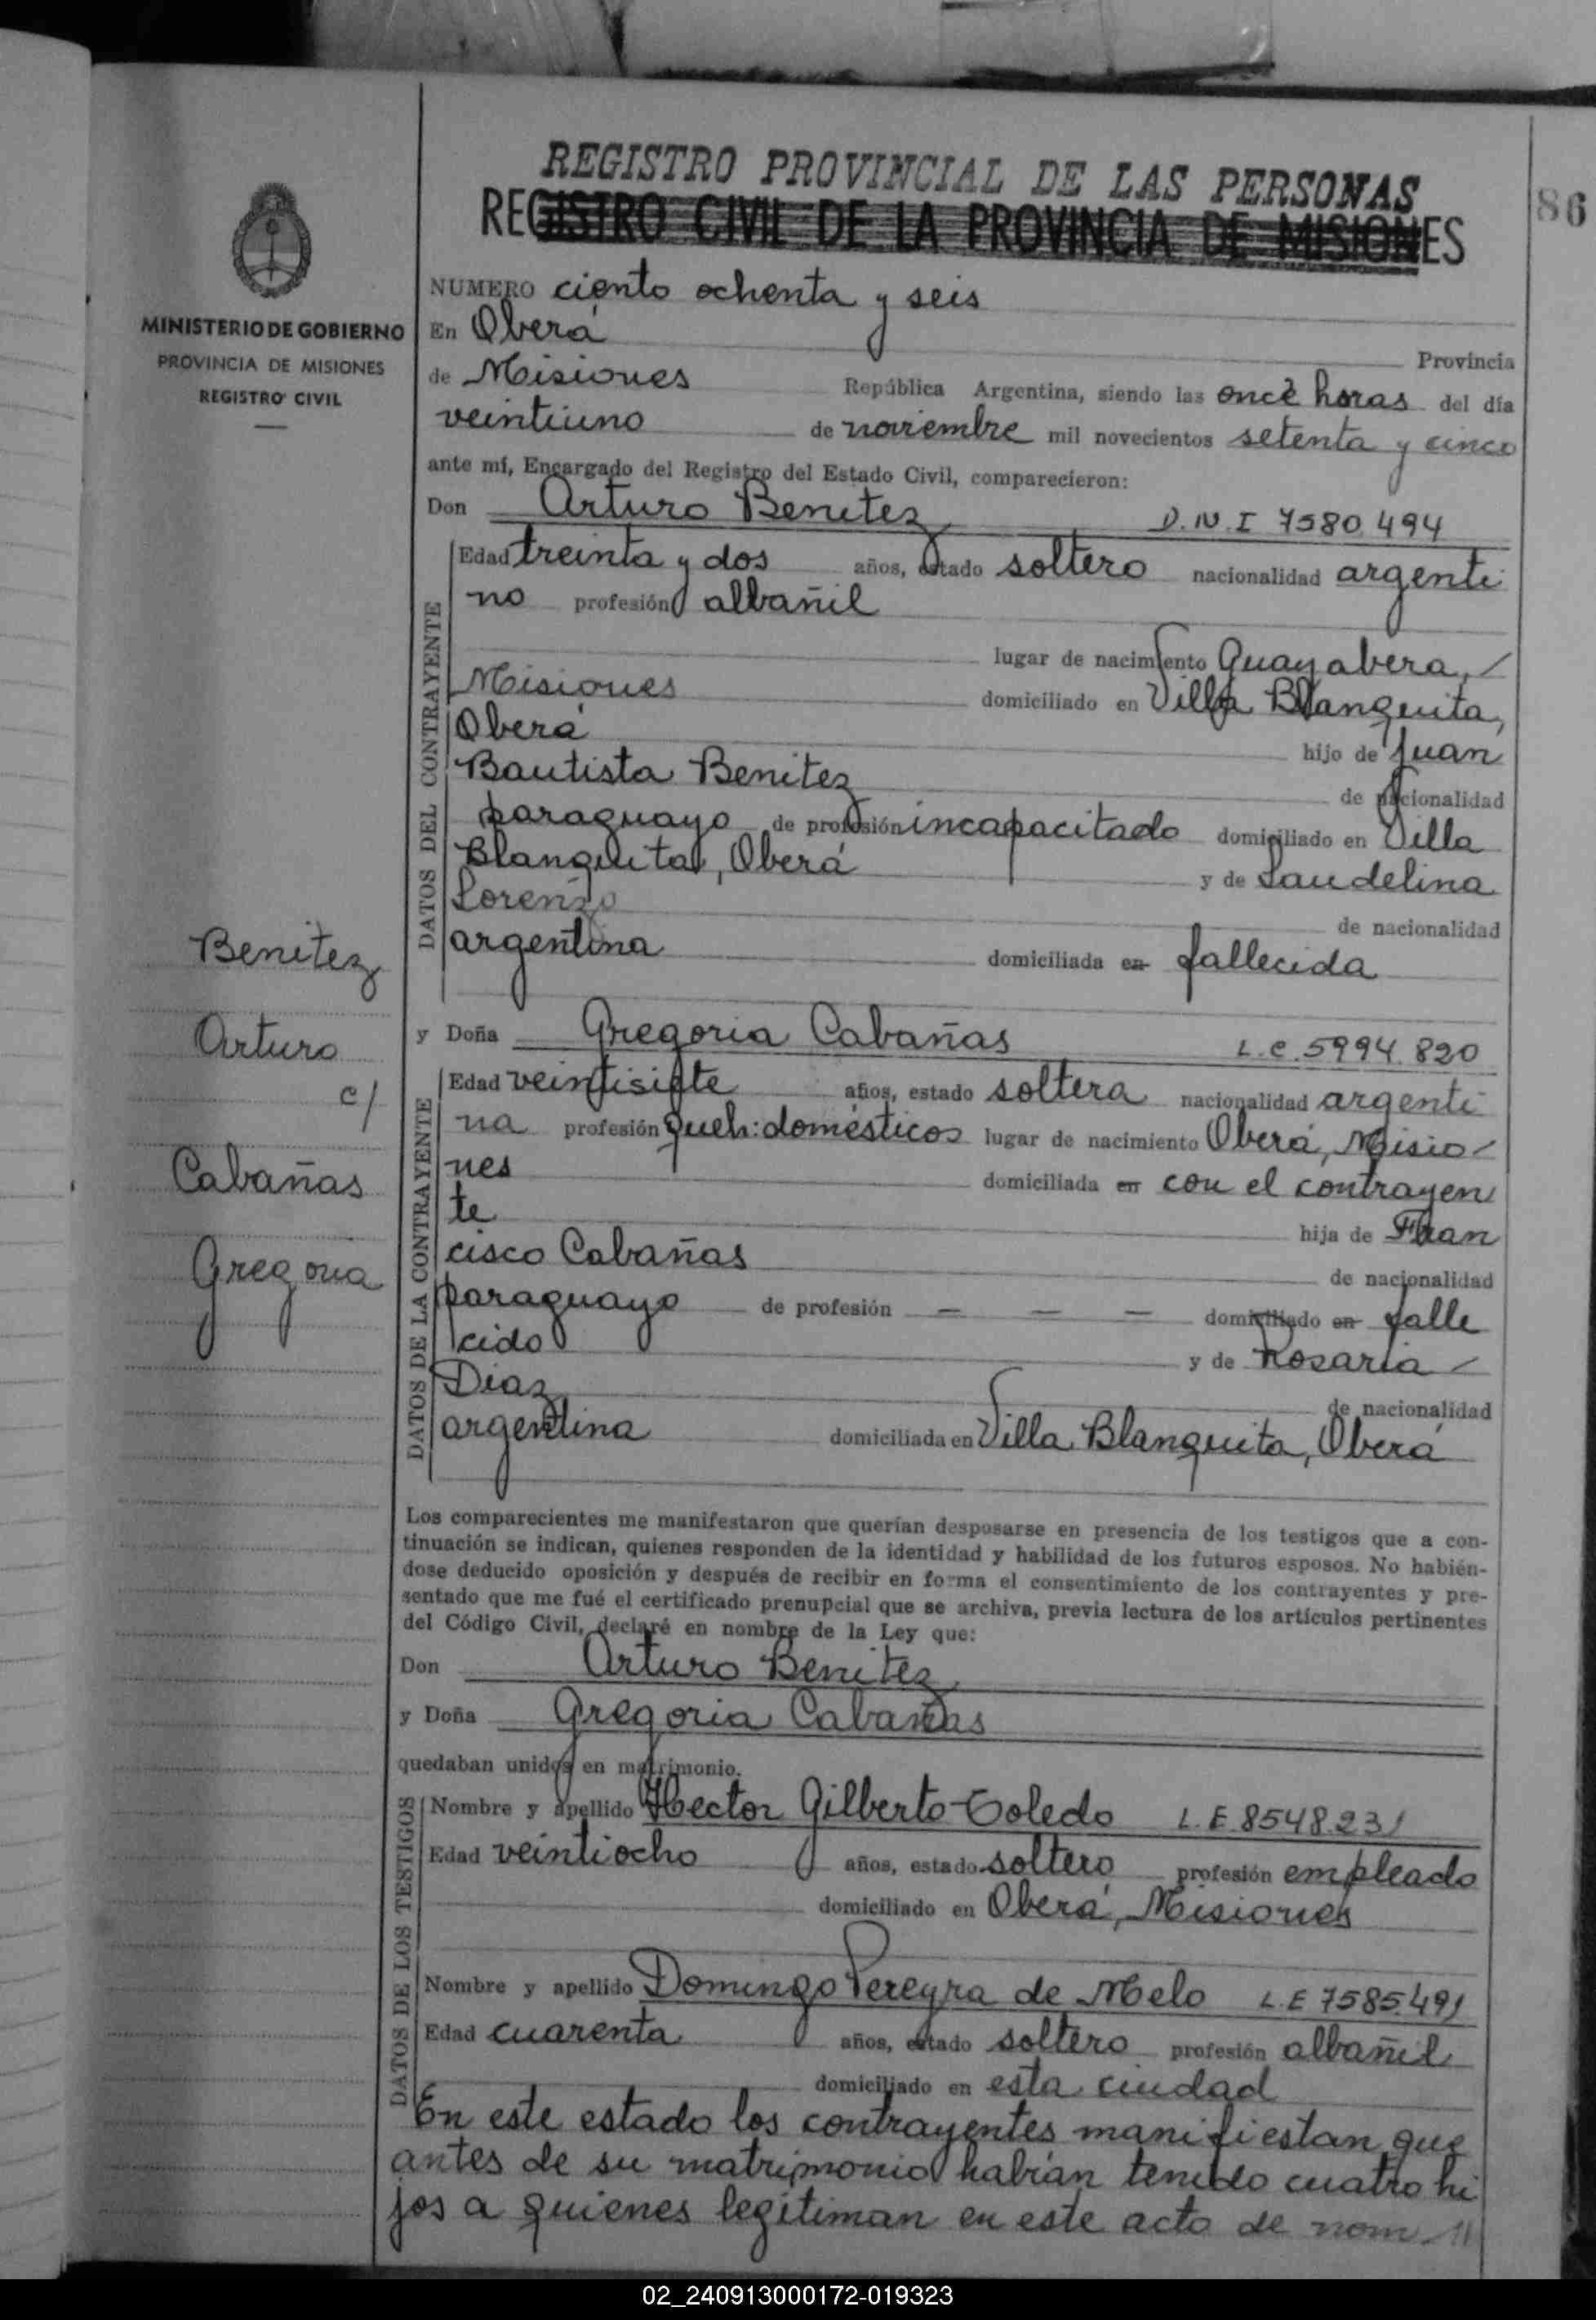 REGISTRO PROVINCIAL DE LAS PERSONAS
REGISTRO CIVIL DE LA PROVINCIA DE MISIONES
86
MINISTERIO DE GOBIERNO
PROVINCIA DE MISIONES
REGISTRO CIVIL
NUMERO ciento ochenta y seis
En Oberá Provincia
de Misiones República Argentina, siendo las once horas del día
veintiuno de noviembre mil novecientos setenta y cinco
ante mí, Encargado del Registro del Estado Civil, comparecieron:
Don Arturo Benitez D.N.I 7580.494
DATOS DEL CONTRAYENTE
Edad treinta y dos años, estado soltero nacionalidad argenti
no profesión albañil
lugar de nacimiento Guayabera, /
Misiones domiciliado en Villa Blanquita,
Oberá hijo de Juan
Bautista Benitez de nacionalidad
paraguayo de profesión incapacitado domiciliado en Villa
Blanquita, Oberá y de Laudelina
Lorenzo de nacionalidad
argentina domiciliada en fallecida
Benitez
Arturo
c/
Cabañas
Gregoria
y Doña Gregoria Cabañas L.C. 5994.820
DATOS DE LA CONTRAYENTE
Edad veintisiete años, estado soltera nacionalidad argenti
na profesión queh: domésticos lugar de nacimiento Oberá, Misio-
nes domiciliada en con el contrayen
te hija de Fran
cisco Cabañas de nacionalidad
paraguayo de profesión — — — domiciliado en falle
cido y de Rosaria /
Diaz de nacionalidad
argentina domiciliada en Villa Blanquita, Oberá
Los comparecientes me manifestaron que querían desposarse en presencia de los testigos que a con-
tinuación se indican, quienes responden de la identidad y habilidad de los futuros esposos. No habién-
dose deducido oposición y después de recibir en forma el consentimiento de los contrayentes y pre-
sentado que me fué el certificado prenupcial que se archiva, previa lectura de los artículos pertinentes
del Código Civil, declaré en nombre de la Ley que:
Don Arturo Benitez
y Doña Gregoria Cabañas
quedaban unidos en matrimonio.
DATOS DE LOS TESTIGOS
Nombre y apellido Hector Gilberto Toledo L.E. 8548.231
Edad veintiocho años, estado soltero profesión empleado
domiciliado en Oberá, Misiones
Nombre y apellido Domingo Pereyra de Melo L.E 7585.491
Edad cuarenta años, estado soltero profesión albañil
domiciliado en esta ciudad
En este estado los contrayentes manifiestan que
antes de su matrimonio habían tenido cuatro hi
jos a quienes legitiman en este acto de nom-//
02_240913000172-019323